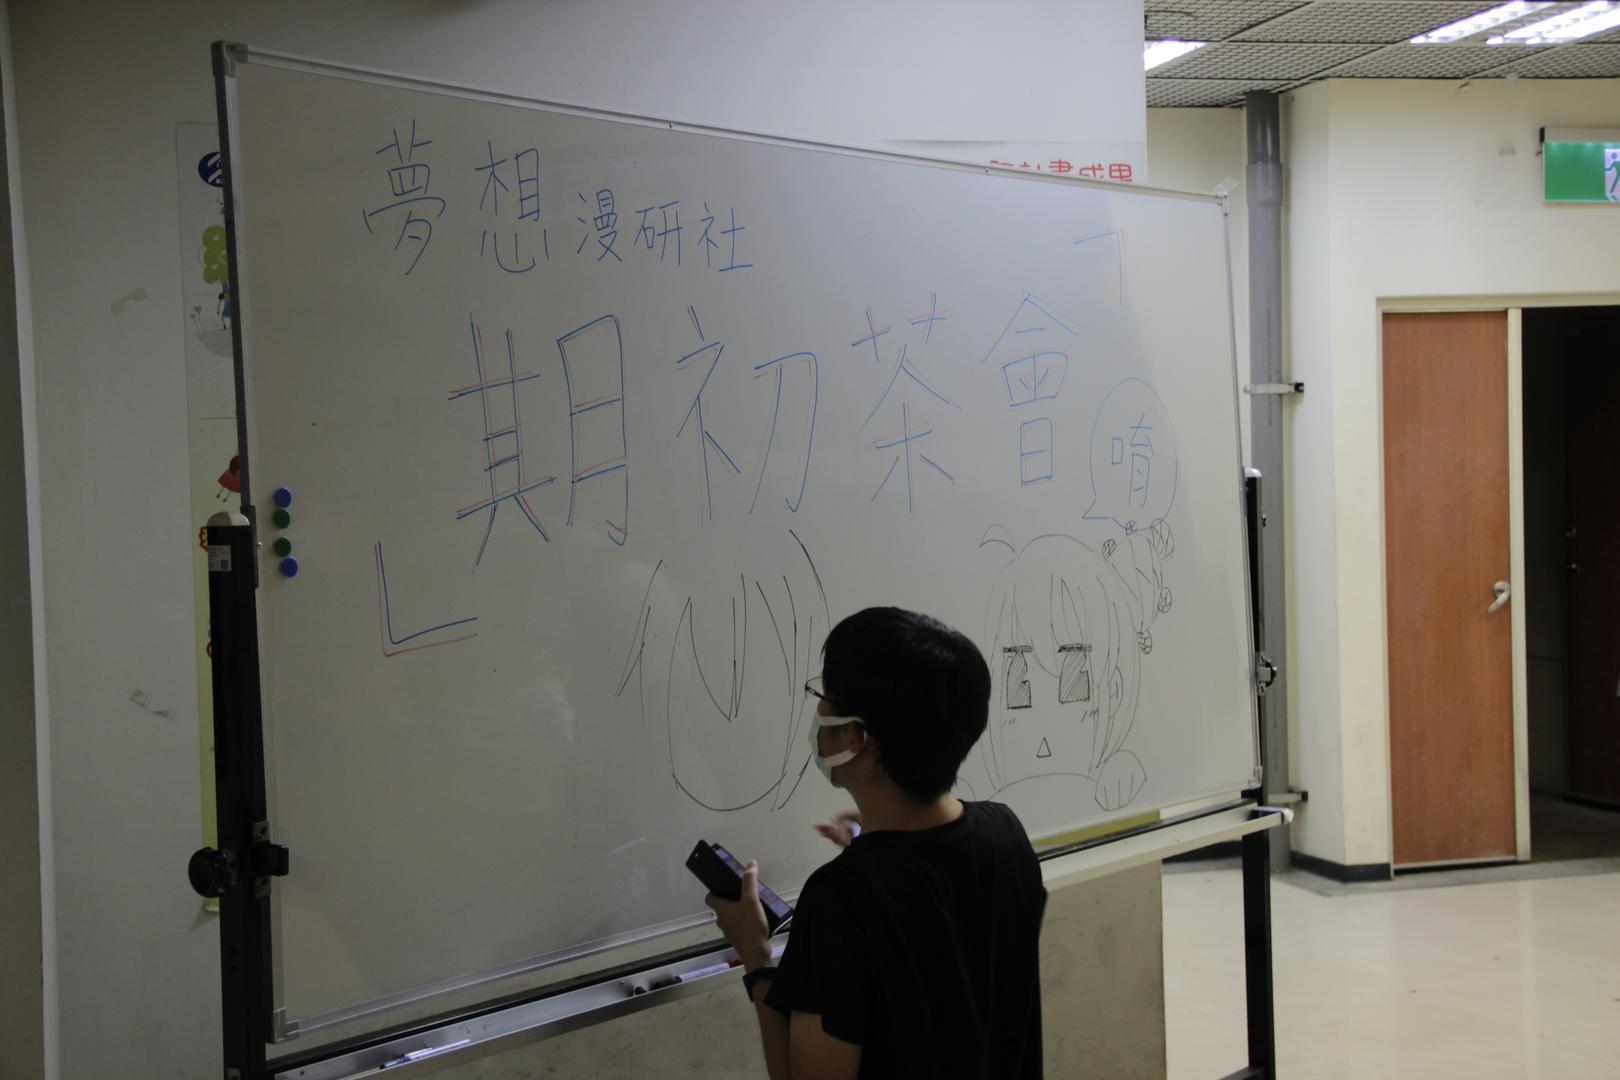 夢想漫研社
期初茶會
唷
計畫成果